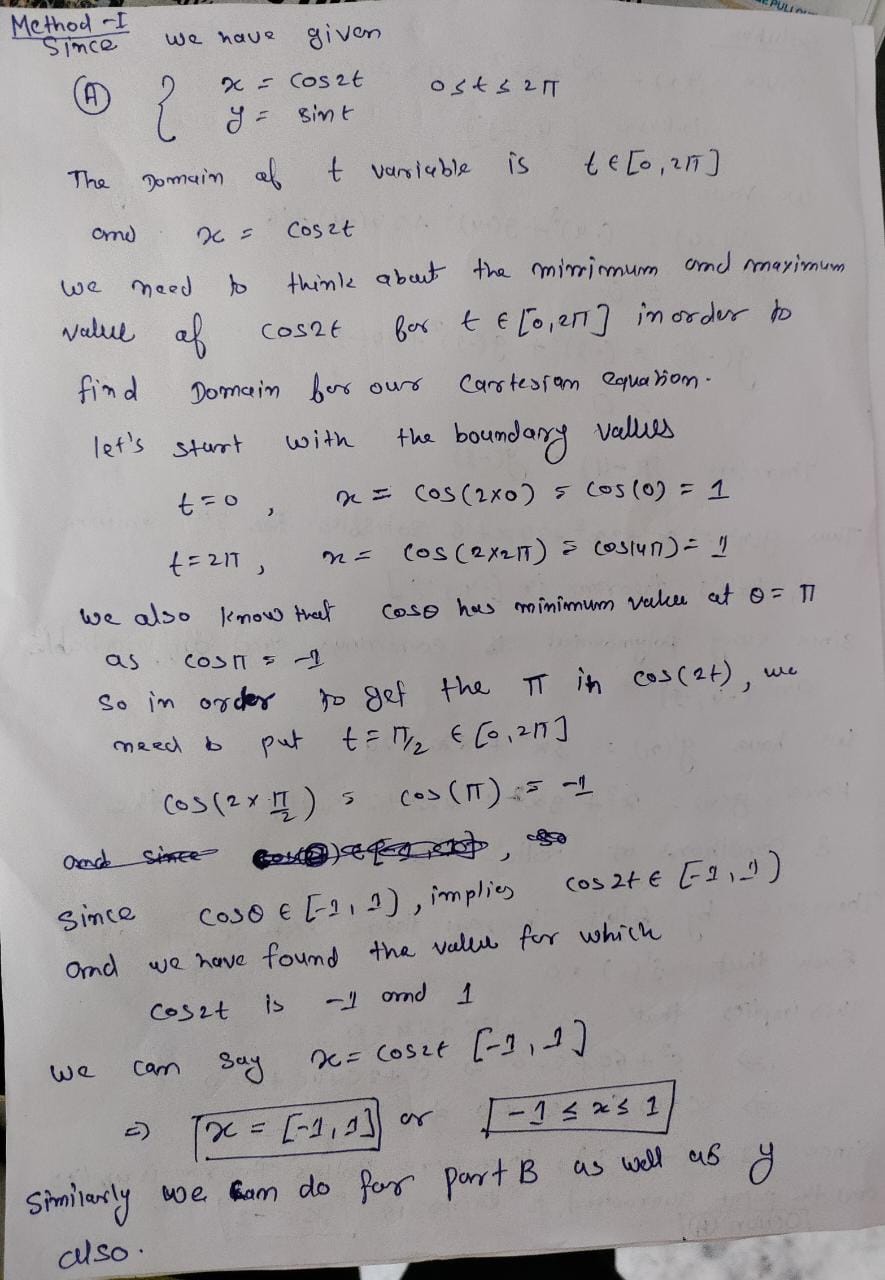 Method-I
Since we have given
(A) { x = cos2t 0≤t≤2π
y = sint
The Domain of t variable is t∈[0,2π]
and x = cos2t
we need to think about the minimum and maximum
value of cos2t for t ∈ [0,2π] in order to
find Domain for our Cartesian equation.
let's start with the boundary values
t=0, x = cos(2×0) = cos(0) = 1
t=2π, x = cos(2×2π) = cos(4π) = 1
We also know that cosθ has minimum value at θ = π
as cosπ = -1
So in order to get the π in cos(2t), we
need to put t = π/2 ∈ [0,2π]
cos(2×π/2) = cos(π) = -1
and since
since cosθ ∈ [-1,1], implies cos2t ∈ [-1,1]
and we have found the value for which
cos2t is -1 and 1
we can say x = cos2t [-1,1]
⇒ x = [-1,1] or -1 ≤ x ≤ 1
Similarly we can do for part B as well as y
also.